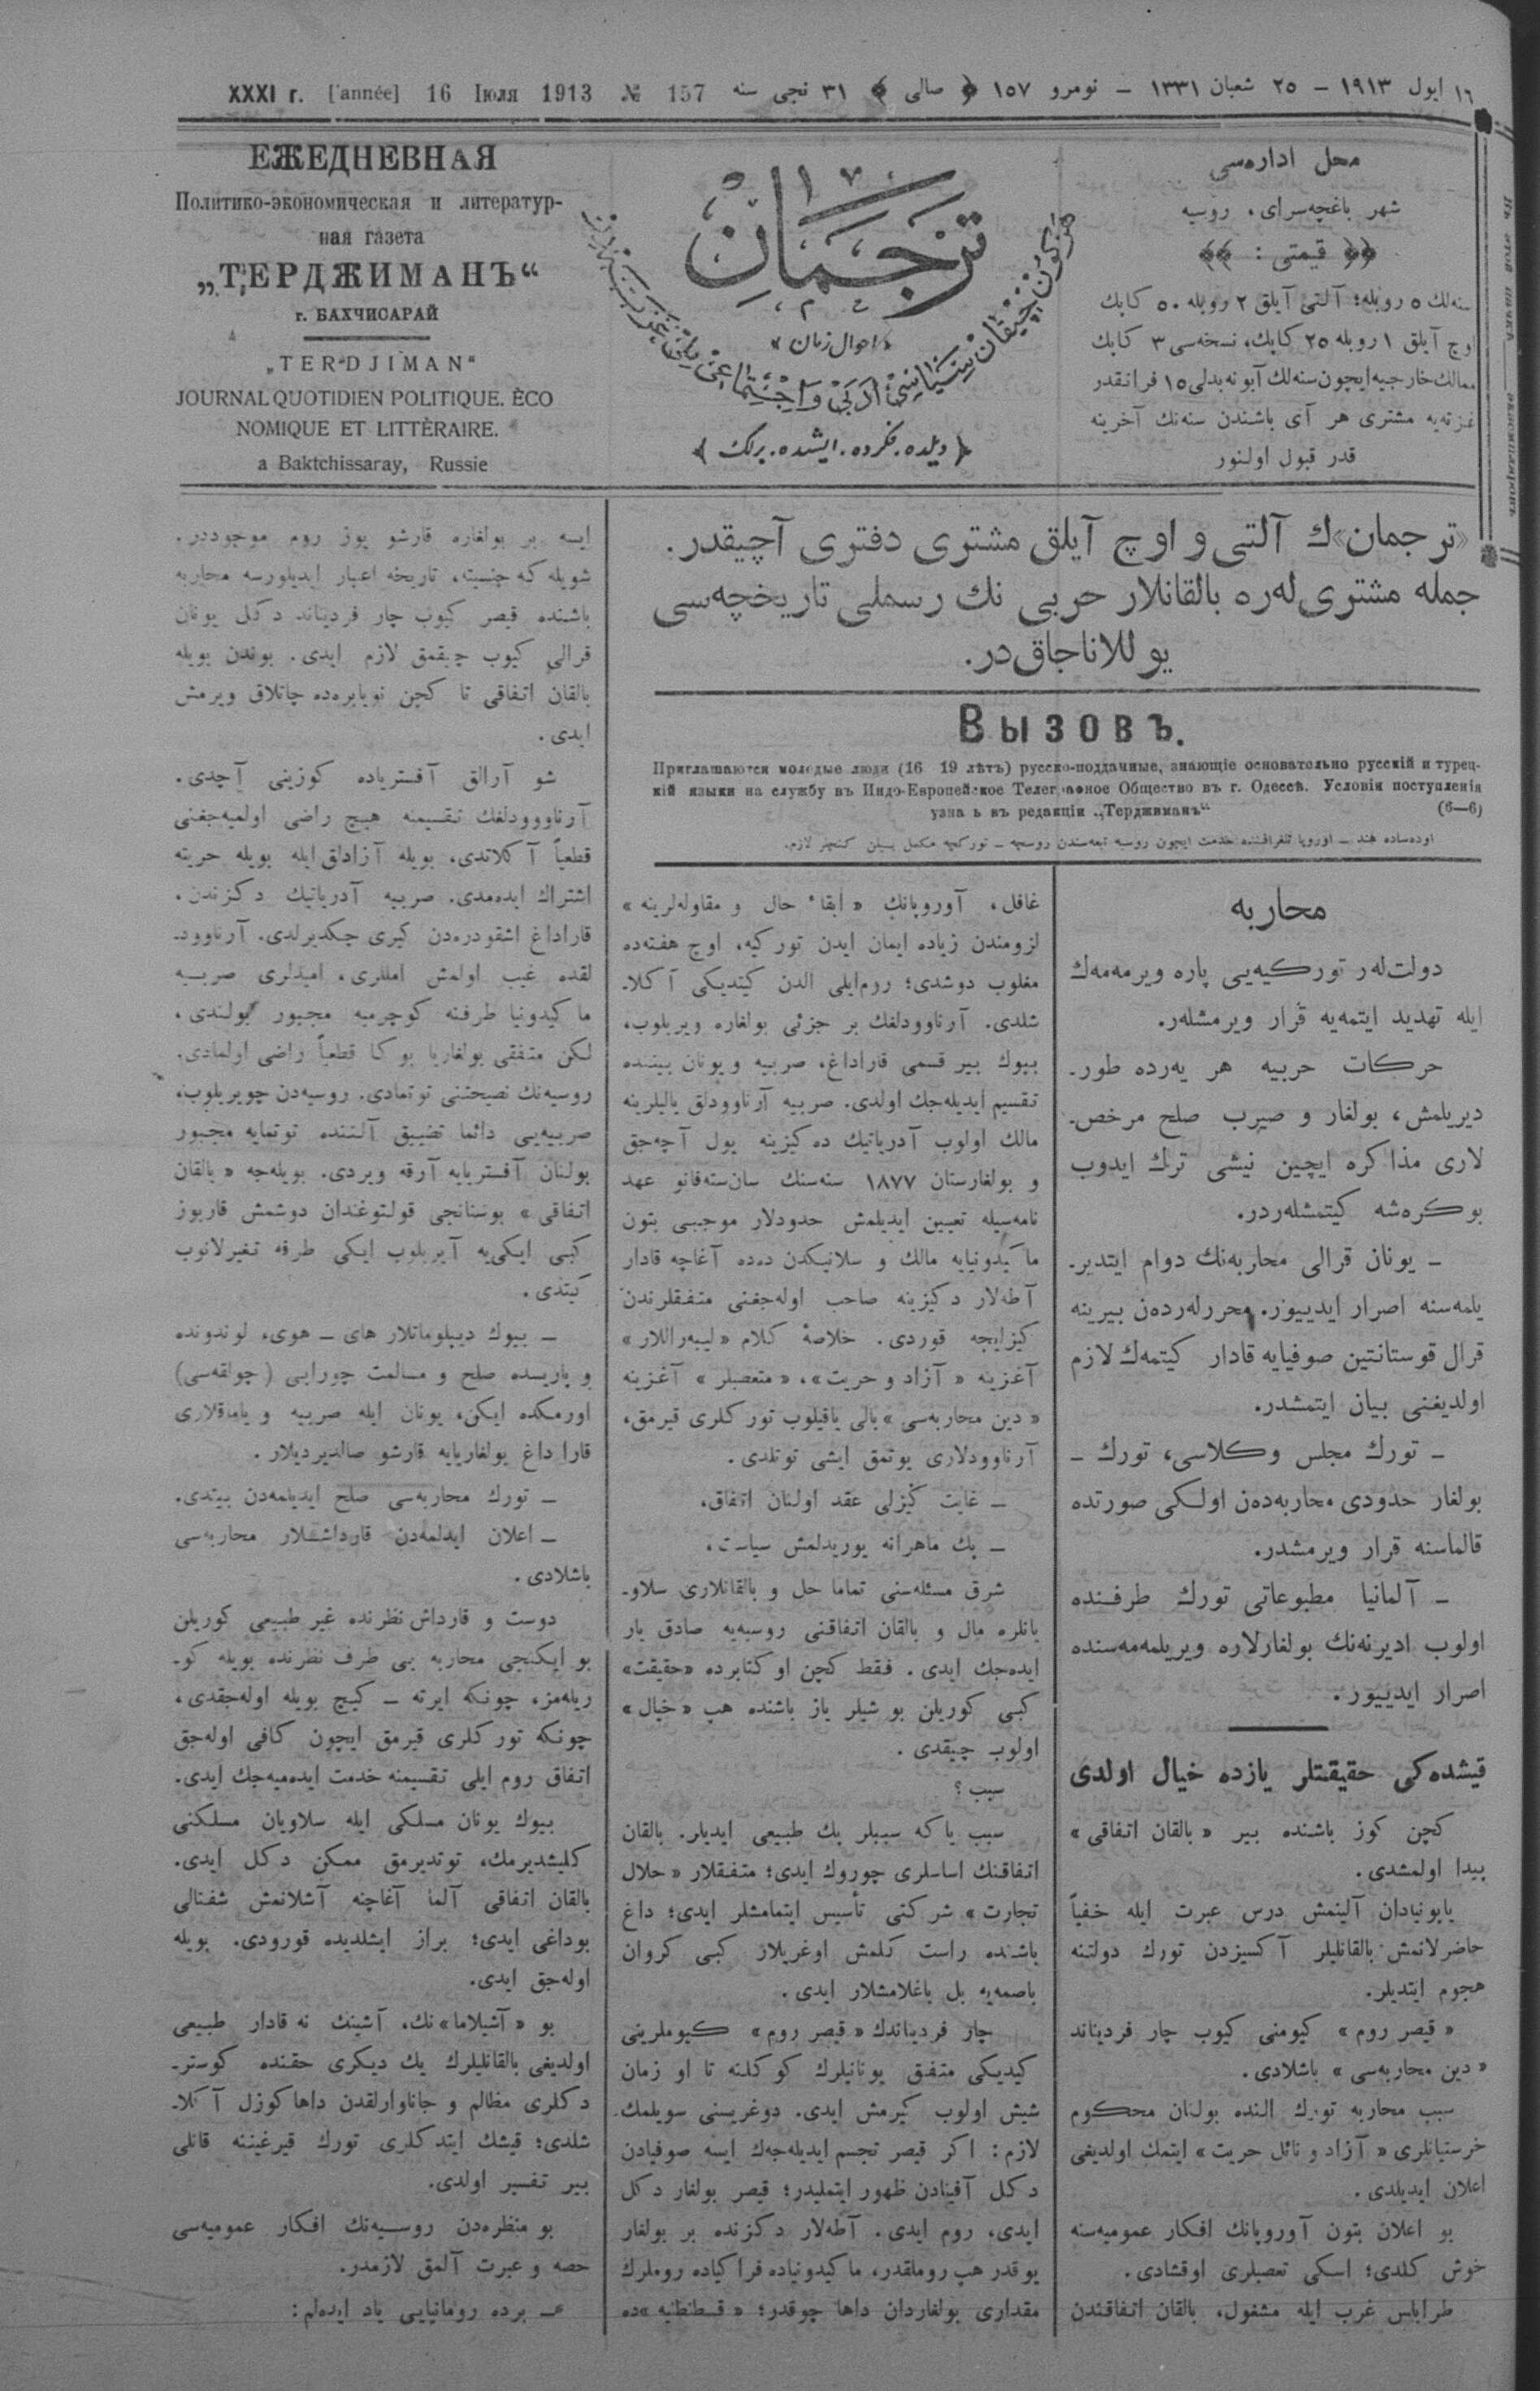 XXXI г. [l'année] 16 Іюля 1913 № 157 ١٦ ایول ١٩١٣ – ٢٥ شعبان ١٣٣١ – نومرو ١٥٧ ﴿ صالی ﴾ ٣١ نجی سنه
ЕЖЕДНЕВНАЯ
Политико-экономическая и литератур-
ная газета
„ТЕРДЖИМАНЪ“
г. БАХЧИСАРАЙ
„TERDJIMAN“
JOURNAL QUOTIDIEN POLITIQUE. ÈCO
NOMIQUE ET LITTÈRAIRE.
a Baktchissaray, Russie
ترجمان
«احوال زمان»
هرکون چیقان سیاسی، ادبی و اجتماعی
﴿ دیلده. فکرده. ایشده. برلك ﴾
محل اداره‌سی
شهر باغچه‌سرای، روسیه
﴿﴿ قیمتی : ﴾﴾
سنه‌لك ٥ روبله؛ آلتی آیلق ٢ روبله ٥٠ کاپك
اوچ آیلق ١ روبله ٢٥ کاپك، نسخه‌سی ٣ کاپك
ممالك خارجیه ایچون سنه‌لك آبونه بدلی ١٥ فرانقدر
غزته‌یه مشتری هر آی باشندن سنه‌نك آخرینه
قدر قبول اولنور
«ترجمان»ك آلتی و اوچ آیلق مشتری دفتری آچیقدر.
جمله مشتری‌لەره بالقانلار حربی نك رسملی تاریخچه‌سی
یوللاناجاق‌در.
Вызовъ.
Приглашаются молодые люди (16 19 лѣтъ) русско-подданные, знающіе основательно русскій и турец-
кій языки на службу въ Индо-Европейское Телеграфное Общество въ г. Одессѣ. Условія поступленія
узна ь въ редакціи „Терджиманъ“ (6—6)
اوده‌ساده هند – اوروپا تلغرافنده خدمت ایچون روسیه تبعه‌سندن روسچه – تورکچه مکمل بیلن کنچلر لازم.
محاربه
دولت‌لەر تورکیه‌یی پاره ویرمه‌مەك
ایله تهدید ایتمه‌یه قرار ویرمشلەر.
حرکات حربیه هر یەرده طور-
دیریلمش، بولغار و صیرب صلح مرخص-
لاری مذاکره ایچین نیشی ترك ایدوب
بوکره‌شه کیتمشلەردر.
– یونان قرالی محاربه‌نك دوام ایتدیر-
یلمه‌سنه اصرار ایدییور. محررلەرده‌ن بیرینه
قرال قوستانتین صوفیایه قادار کیتمەك لازم
اولدیغنی بیان ایتمشدر.
– تورك مجلس وکلاسی، تورك –
بولغار حدودی محاربه‌ده‌ن اولکی صورتده
قالماسنه قرار ویرمشدر.
– آلمانیا مطبوعاتی تورك طرفنده
اولوب ادیرنه‌نك بولغارلاره ویریلمه‌مه‌سنده
اصرار ایدییور.
قیشده‌کی حقیقتلر یازده خیال اولدی
کچن کوز باشنده بیر «بالقان اتفاقی»
پیدا اولمشدی.
یاپونیادان آلینمش درس عبرت ایله خفیاً
حاضرلانمش بالقانلیلر آکسیزدن تورك دولتنه
هجوم ایتدیلر.
«قیصر روم» کیومنی کیوب چار فردیناند
«دین محاربه‌سی» باشلادی.
سبب محاربه تورك النده بولنان محکوم
خرستیانلری «آزاد و نائل حریت» ایتمك اولدیغی
اعلان ایدیلدی.
بو اعلان بتون آوروپانك افکار عمومیه‌سنه
خوش کلدی؛ اسکی تعصبلری اوقشادی.
طرابلس غرب ایله مشغول، بالقان اتفاقندن
غافل، آوروپانك «ابقاء حال و مقاوله‌لرینه»
لزومندن زیاده ایمان ایدن تورکیه، اوچ هفته‌ده
مغلوب دوشدی؛ روم‌ایلی الدن کیتدیکی آکلا-
شلدی. آرناوودلغك بر جزئی بولغاره ویریلوب،
بیوك بیر قسمی قاراداغ، صربیه و یونان بیننده
تقسیم ایدیله‌جك اولدی. صربیه آرناوودلق یالیلرینه
مالك اولوب آدریاتیك ده‌کیزینه یول آچه‌جق
و بولغارستان ١٨٧٧ سنه‌سنك سان‌سته‌فانو عهد
نامه‌سیله تعیین ایدیلمش حدودلار موجبی بتون
ماکیدونیایه مالك و سلانیکدن دده آغاچه قادار
آطه‌لار دکیزینه صاحب اوله‌جغنی متفقلرندن
کیزلیجه قوردی. خلاصهٔ کلام «لیبه‌راللار»
آغزینه «آزاد و حریت»، «متعصبلر» آغزینه
«دین محاربه‌سی» بالی یاقیلوب تورکلری قیرمق،
آرناوودلاری یوتمق ایشی توتلدی.
– غایت کیزلی عقد اولنان اتفاق،
– پك ماهرانه یوریدلمش سیاست،
شرق مسئله‌سنی تماما حل و بالقانلاری سلاو-
یانلره مال و بالقان اتفاقنی روسیه‌یه صادق یار
ایده‌جك ایدی. فقط کچن اوکتابرده «حقیقت»
کبی کوریلن بو شیلر یاز باشنده هپ «خیال»
اولوب چیقدی.
سبب؟
سبب یاکه سببلر پك طبیعی ایدیلر. بالقان
اتفاقنك اساسلری چوروك ایدی؛ متفقلار «حلال
تجارت» شرکتی تأسیس ایتمامشلر ایدی؛ داغ
باشنده راست کلمش اوغریلار کبی کروان
باصمه‌یه بل باغلامشلار ایدی.
چار فردیناندك «قیصر روم» کیوملرینی
کیدیکی متفق یونانیلرك کوکلنه تا او زمان
شیش اولوب کیرمش ایدی. دوغریسنی سویلمك
لازم: اکر قیصر تجسم ایدیله‌جەك ایسه صوفیادن
دکل آفینادن ظهور ایتملیدر؛ قیصر بولغار دکل
ایدی، روم ایدی. آطه‌لار دکزنده بر بولغار
یوقدر هپ روملقدر، ماکیدونیاده فراکیاده روملرك
مقداری بولغاردان داها چوقدر؛ «قسطنطنیه»ده
ایسه بر بولغاره قارشو یوز روم موجوددر.
شویله که جنسیته، تاریخه اعتبار ایدیلورسه محاربه
باشنده قیصر کیوب چار فردیناند دکل یونان
قرالی کیوب چیقمق لازم ایدی. بوندن بویله
بالقان اتفاقی تا کچن نویابرده‌ده چاتلاق ویرمش
ایدی.
شو آرالق آفستریاده کوزینی آچدی.
آرناووودلغك تقسیمنه هیچ راضی اولمیه‌جغنی
قطعیاً آکلاتدی، بویله آزادلق ایله بویله حریته
اشتراك ایده‌مدی. صربیه آدریاتیك دکزندن،
قاراداغ اشقودره‌دن کیری چکدیرلدی. آرناوود-
لقده غیب اولمش امللری، امیدلری صربیه
ماکیدونیا طرفنه کوچرمیه مجبور بولندی،
لکن متفقی بولغاریا بوکا قطعیاً راضی اولمادی.
روسیه‌نك نصیحتنی توتمادی. روسیه‌دن چویریلوب،
صربیه‌یی دائما تضییق آلتنده توتمایه مجبور
بولنان آفستریایه آرقه ویردی. بویله‌جه «بالقان
اتفاقی» بوستانجی قولتوغندان دوشمش قاربوز
کبی ایکی‌یه آیریلوب ایکی طرفه تغیرلانوب
کیتدی.
– بیوك دیپلوماتلار های – هوی، لوندونده
و پاریسده صلح و مسالمت چورابی (چولقه‌سی)
اورمکده ایکن، یونان ایله صربیه و یاماقلاری
قارا داغ بولغاریایه قارشو صالدیردیلار.
– تورك محاربه‌سی صلح ایدیلمه‌دن بیتدی.
– اعلان ایدلمه‌دن قارداشلار محاربه‌سی
باشلادی.
دوست و قارداش نظرنده غیر طبیعی کوریلن
بو ایکنجی محاربه بی طرف نظرنده بویله کو-
ریله‌مز، چونکه ایرته – کیچ بویله اوله‌جقدی،
چونکه تورکلری قیرمق ایچون کافی اوله‌جق
اتفاق روم ایلی تقسیمنه خدمت ایده‌میه‌جك ایدی.
بیوك یونان مسلکی ایله سلاویان مسلکنی
کلیشدیرمك، توتدیرمق ممکن دکل ایدی.
بالقان اتفاقی آلما آغاچنه آشلانمش شفتالی
بوداغی ایدی؛ براز ایشلدیده قورودی. بویله
اوله‌جق ایدی.
بو «آشیلاما»نك، آشینك نه قادار طبیعی
اولدیغی بالقانلیلرك یك دیکری حقنده کوستر-
دکلری مظالم و جاناوارلقدن داها کوزل آکلا-
شلدی؛ قیشك ایتدکلری تورك قیرغیننه قانلی
بیر تفسیر اولدی.
بو منظره‌دن روسیه‌نك افکار عمومیه‌سی
حصه و عبرت آلمق لازمدر.
– برده رومانیایی یاد ایده‌لم: